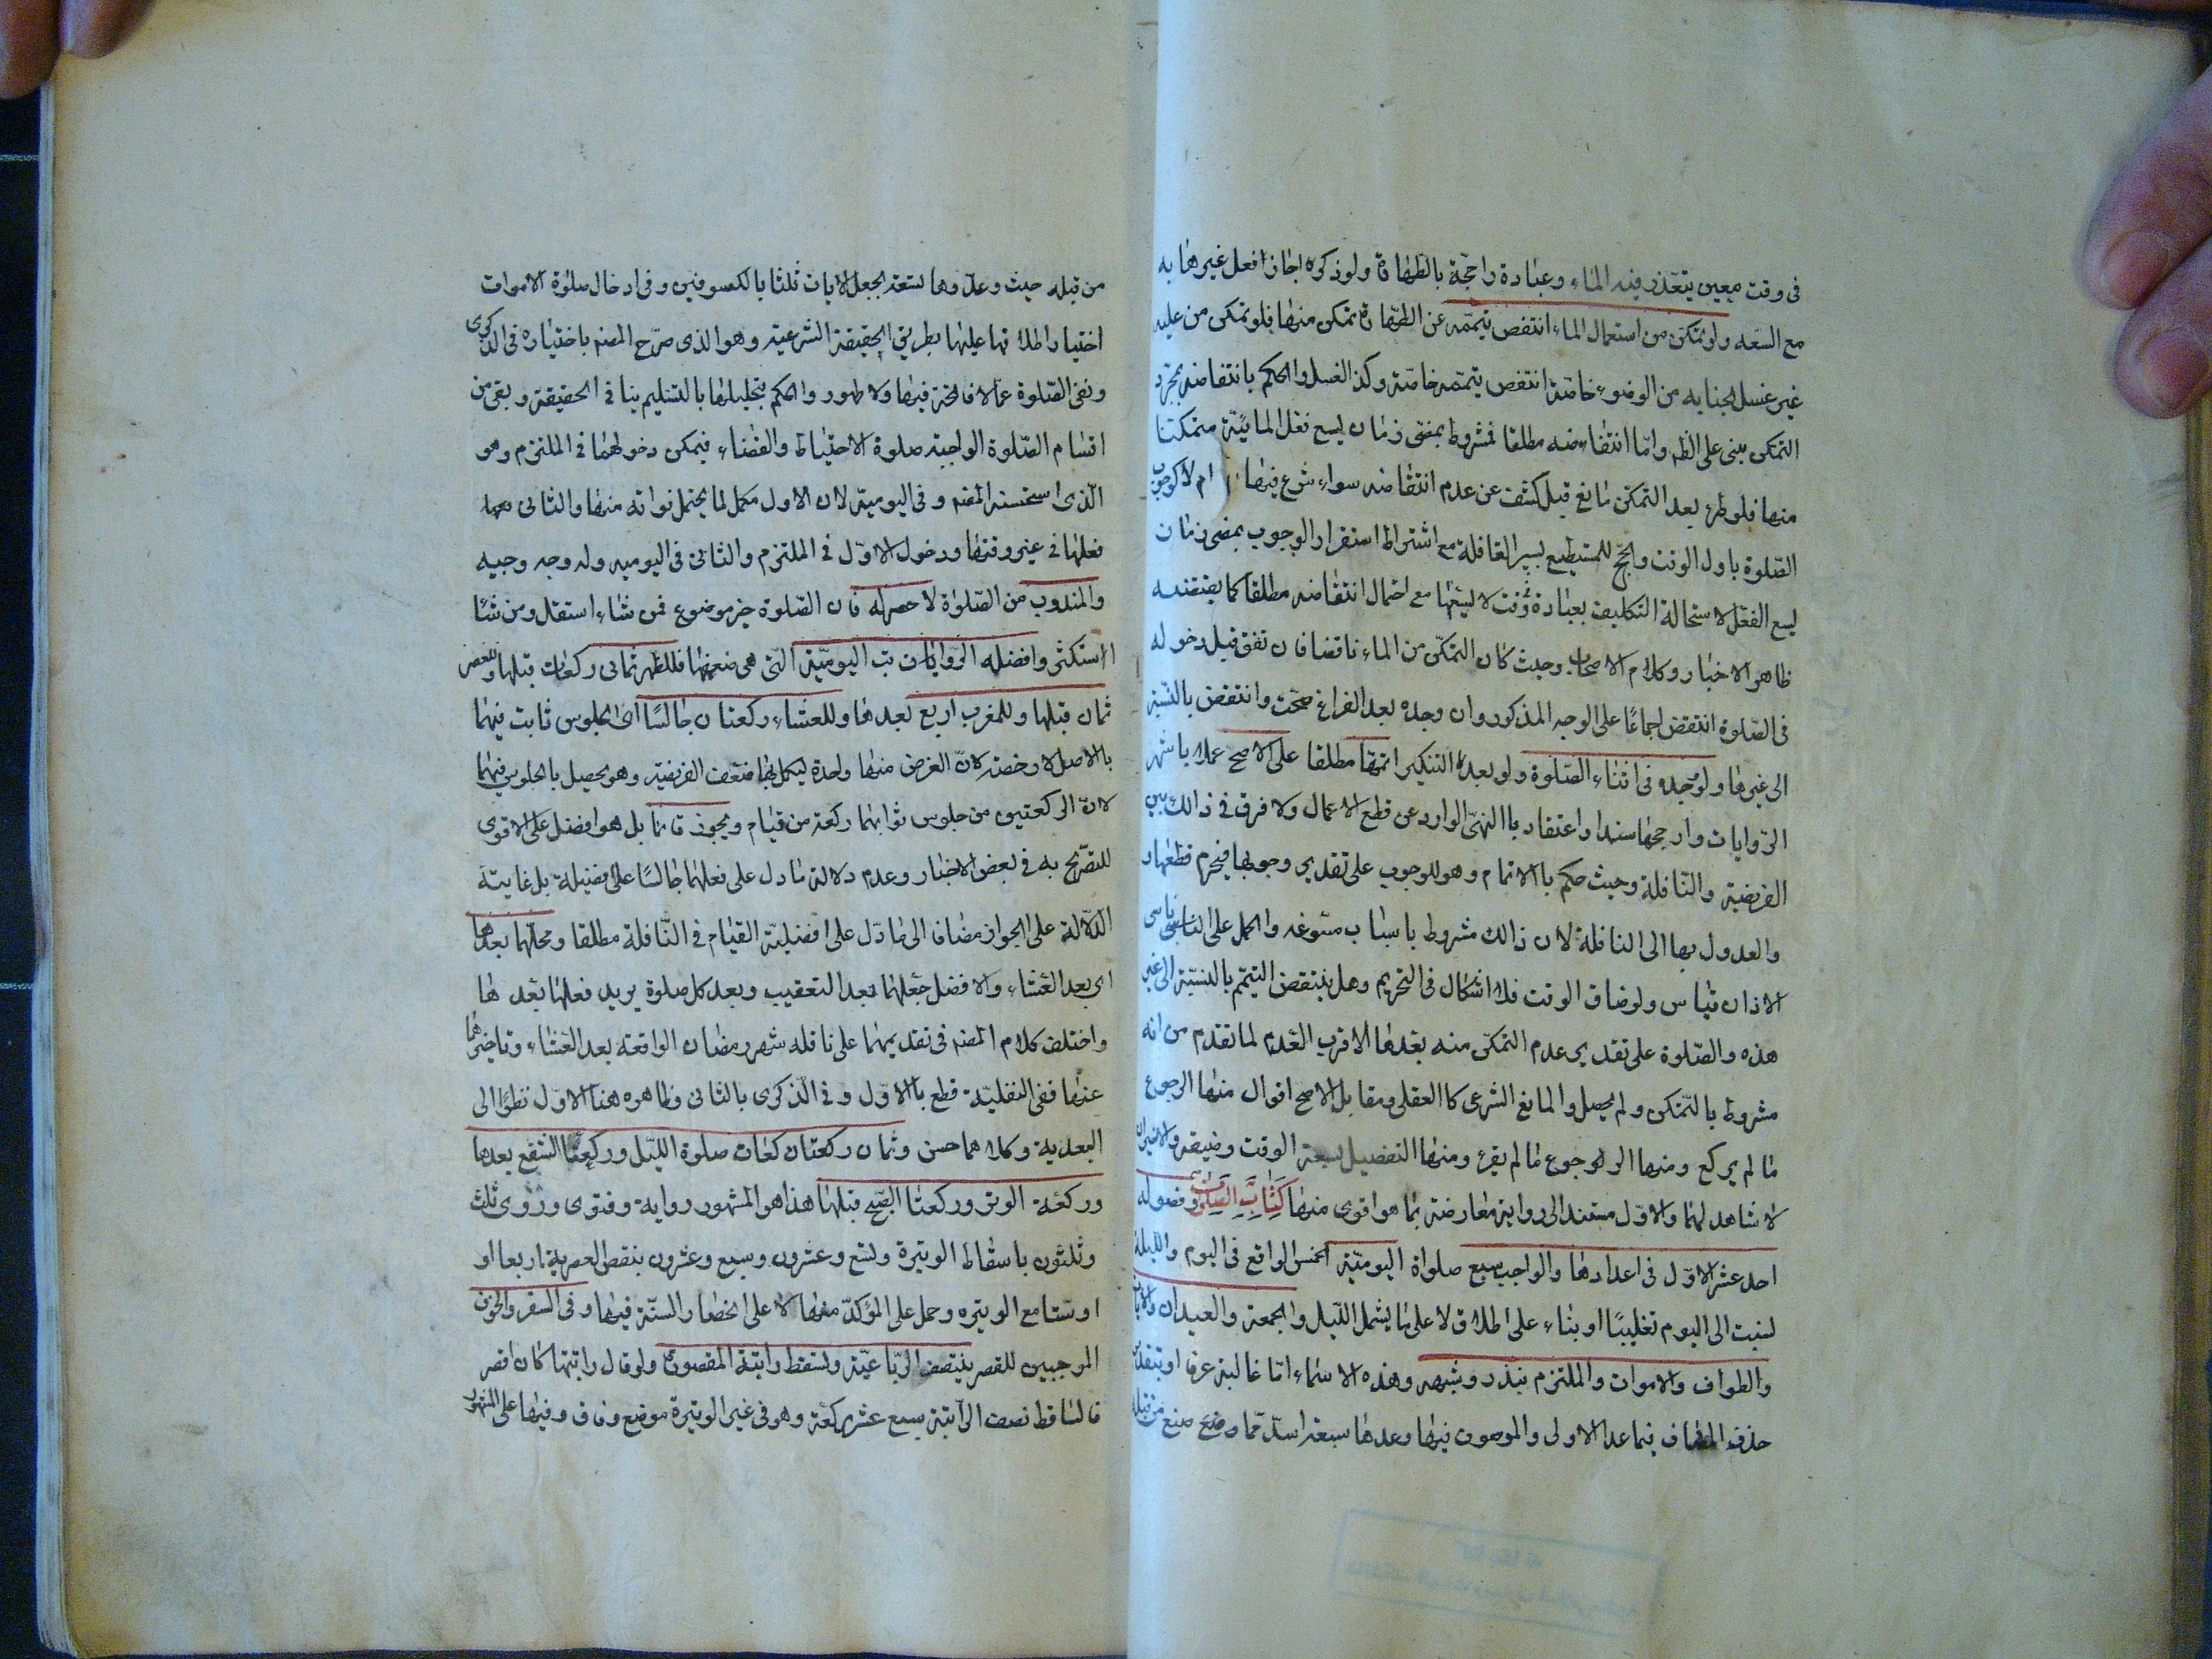 فى وقت معين يتعذر فيه الماء وعبادة راجحة بالطهارة ولو ذكره اجزا فعل غيرها به
مع السعة ولو تمكن من استعمال الماء انتقض تيممه عن الطهارة تمكن منها فلو تمكن من عليه
غير غسل الجنابه من الوضوء خاصة انتقض تيممه خاصة وكذ الغسل والحكم بانتقاضه بمجرد
التمكن مبنى على الظ واما انتقاضه مطلقا فمشروط بمضى زمان يسع فعل المائية متمكنا
منها فلو طرء بعد التمكن مانع قبل كشف عن عدم انتقاضه سواء شرع فيها ام لا كوجوب
الصلوة باول الوقت والحج للمستطيع بسير القافلة مع اشتراط استقرار الوجوب بمضى زمان
يسع الفعل لاستحالة التكليف بعبادة وقت لا يسعها مع احتمال انتقاضه مطلقا كما يقتضيه
ظاهر الاخبار وكلام الاصحاب وحيث كان التمكن من الماء ناقضا فان تفق قبل دخوله
فى الصلوة انتقض اجماعا على الوجه المذكور وان وجده بعد الفراغ صحت وانتقض بالنسبة
الى غيرها ولو وجده فى اثناء الصلوة ولو بعد التكبير اتمها مطلقا على الاصح عملا باشهر
الروايات وارجحها سندا واعتقاد باالنهى الوارد عن قطع الاعمال ولا فرق فى ذالك بين
الفريضة والنافلة وحيث حكم باالاتمام وهو للوجوب على تقدير وجوبها فيحرم قطعها و
والعدول بها الى النافلة لان ذالك مشروط باسباب مسوغه والحمل على الناسى ناسى
الاذان قياس ولو ضاق الوقت فلا اشكال فى التحريم وهل ينتقض التيمم بالنسبة الى غير
هذه والصلوة على تقدير عدم التمكن منه بعدها الاقرب العدم لما تقدم من انه
مشروط بالتمكن ولم يحصل والمانع الشرعى كاالعقلى ومقابل الاصح اقوال منها الرجوع
ما لم يركع ومنها الرجوع ما لم يقرء ومنها التفصيل بسعة الوقت وضيقه والاخيران
لا شاهد لهما والاول مستند الى رواية معارضة بما هو اقوى منها كتاب الصلوة وفصوله
احد عشر الاول فى اعدادها والواجب سبع صلواة اليومية الخمس الواقع فى اليوم والليلة
لنسبت الى اليوم تغليبا او بناء على اطلاق لا على ما يشمل الليل والجمعة والعيدان والايات
والطواف والاموات والملتزم بنذر وشبهه وهذه الاسماء اما غالبة عرفا او بتقدير
حذف المضاف فيما عدا الاولى والموصوف فيها وعدها سبعة اسد مما وضع صنع من قبله
من قبله حيث وعدوها تسعة بجعل الايات ثلثا بالكسوفين وفى ادخال صلوة الاموات
اختيار اطلاقها عليها بطريق الحقيقة الشرعية وهو الذى صرح المصنف باختياره فى الذكرى
ونفى الصلوة عما لا فاتحة فيها ولا طهور والحكم بتحليلها بالتسليم ينافى الحقيقة وبقى من
اقسام الصلوة الواجبة صلوة الاحتياط والقضاء فيمكن دخولهما فى الملتزم وهو
الذى استحسنه المصنف وفى اليومية لان الاول مكمل لما يحتمل فواته منها والثانى
فعلها فى غير وقتها ودخول الاول فى الملتزم والثانى فى اليوميه وله وجه وجيه
والمندوب من الصلوة لا حصر له فان الصلوة خير موضوع فمن شاء استقل ومن شاء
استكثر وافضله الرواتب اليومية التى هى ضعفها فللظهر ثمانى ركعات قبلها وللعصر
ثمان قبلها وللمغرب اربع بعدها وللعشاء ركعتان جالسا اى الجلوس ثابت فيهما
بالاصل لا رخصة لان الغرض منها واحدة ليكمل بها ضعف الفريضة وهو يحصل بالجلوس فيهما
لان الركعتين من جلوس ثوابهما ركعة من قيام ويجوز قائما بل هو افضل على الاقوى
للتصريح به فى بعض الاخبار وعدم دلالة ما دل على فعلهما جالسا على افضيلة بل غايته
الدلالة على الجواز مضاف الى ما دل على افضلية القيام فى النافلة مطلقا ومحلهما بعدها
اى بعد العشاء والافضل جعلهما بعد التعقيب وبعد كل صلوة يريد فعلها بعدها
واختلف كلام المصنف فى تقديمهما على نافلة شهر رمضان الواقعة بعد العشاء وتاخيرهما
عنها ففى النفلية قطع باالاول وفى الذكرى بالثانى وظاهره هنا الاول نظرا الى
البعدية وكلاهما حسن وثمان ركعتان كعات صلوة الليل وركعتا الشفع بعدها
وركعة الوتر وركعتا الصبح قبلها هذا هو المشهور رواية وفتوى وروى ثلث
وثلثون باسقاط الوتيرة وتسع وعشرون وسبع وعشرون بنقص العصرية اربعا او
او ستا مع الوتيره وحمل على المؤكد منها لا على انحصار السنة فيها وفى السفر والخوف
الموجبين للقصر ينتصف الرباعية وتسقط راتبة المقصورة ولو قال راتبتها كان اقصر
فالساقط نصف الراتبة سبع عشر ركعة وهو فى غير الوتيرة موضع وفاق وفيها على المشهور